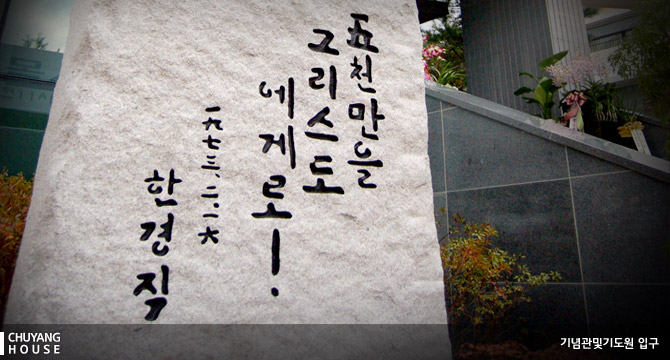 五천만을
그리스도
에게로!
一九七三、二、一六
한경직
CHUYANG
HOUSE
기념관및기도원 입구